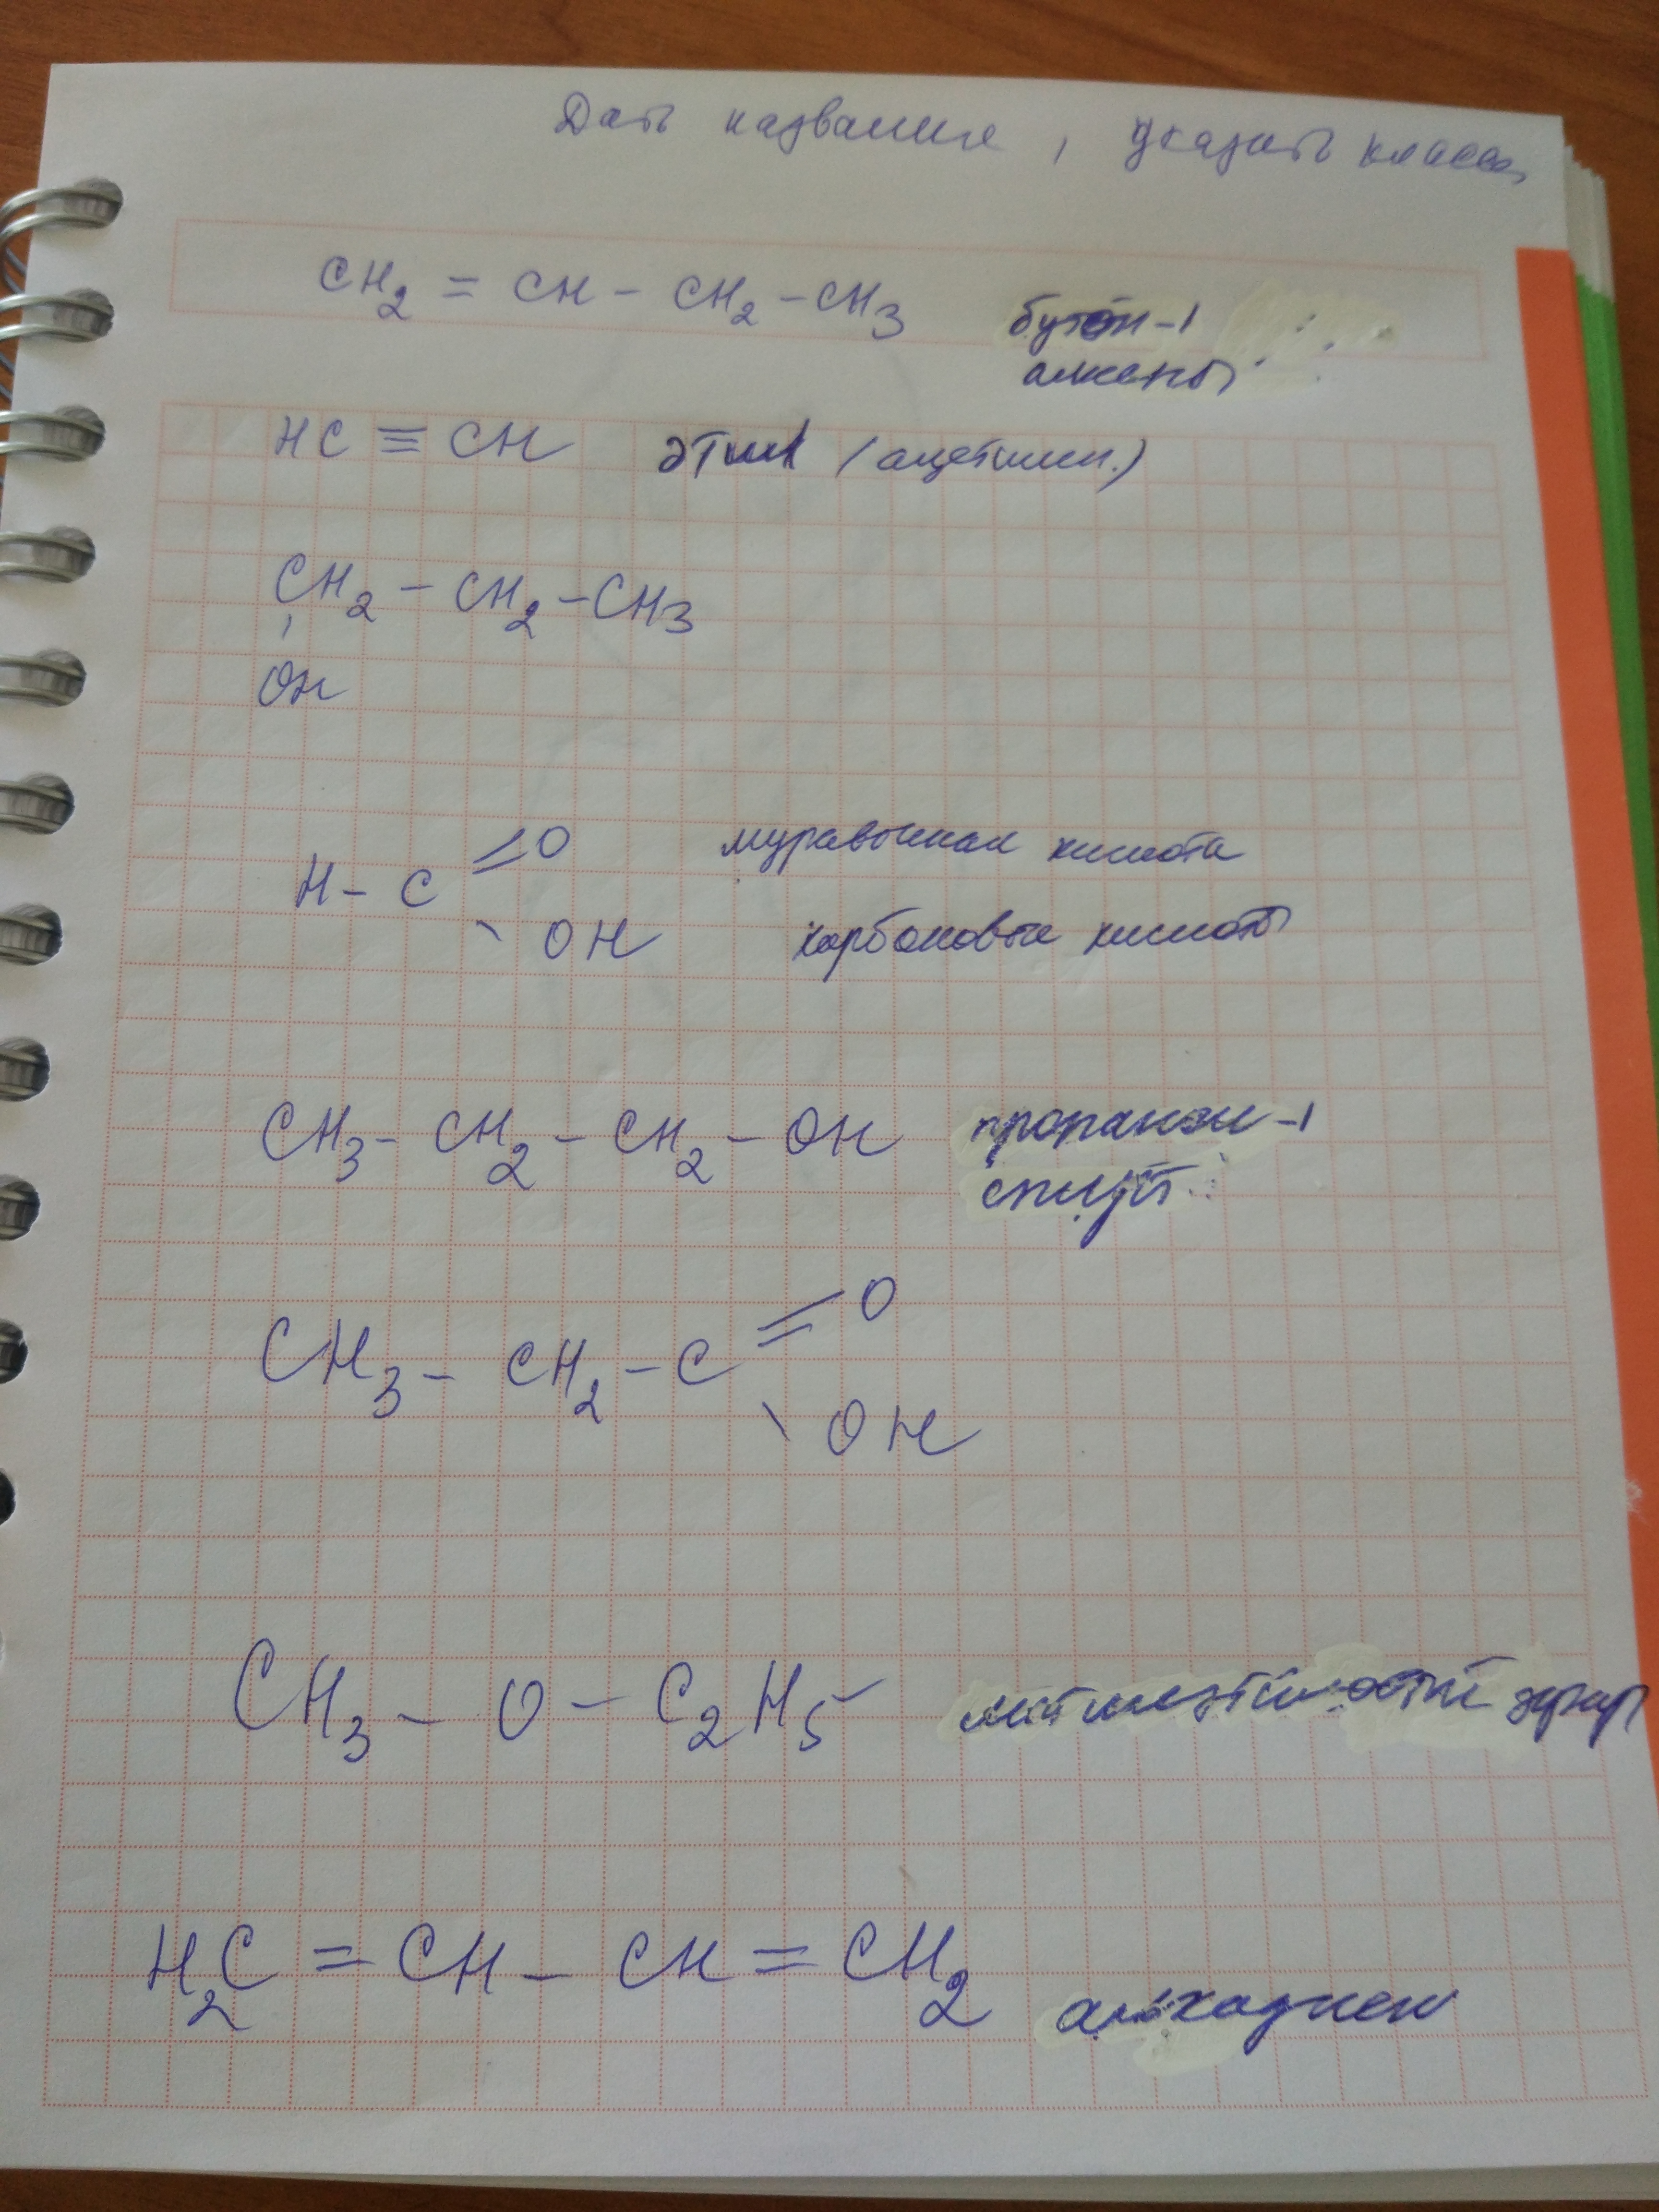 Дать название, указать класс
CH2 = CH - CH2 - CH3
бутен-1
алкены
HC ≡ CH этин (ацетилен.)
CH2 - CH2 - CH3
OH
=O
H - C
OH
муравьиная кислота
карбоновые кислоты
CH3 - CH2 - CH2 - OH
пропанол-1
спирт
=O
CH3 - CH2 - C
OH
CH3 - O - C2H5
эфир
H2C = CH - CH = CH2
алкадиен